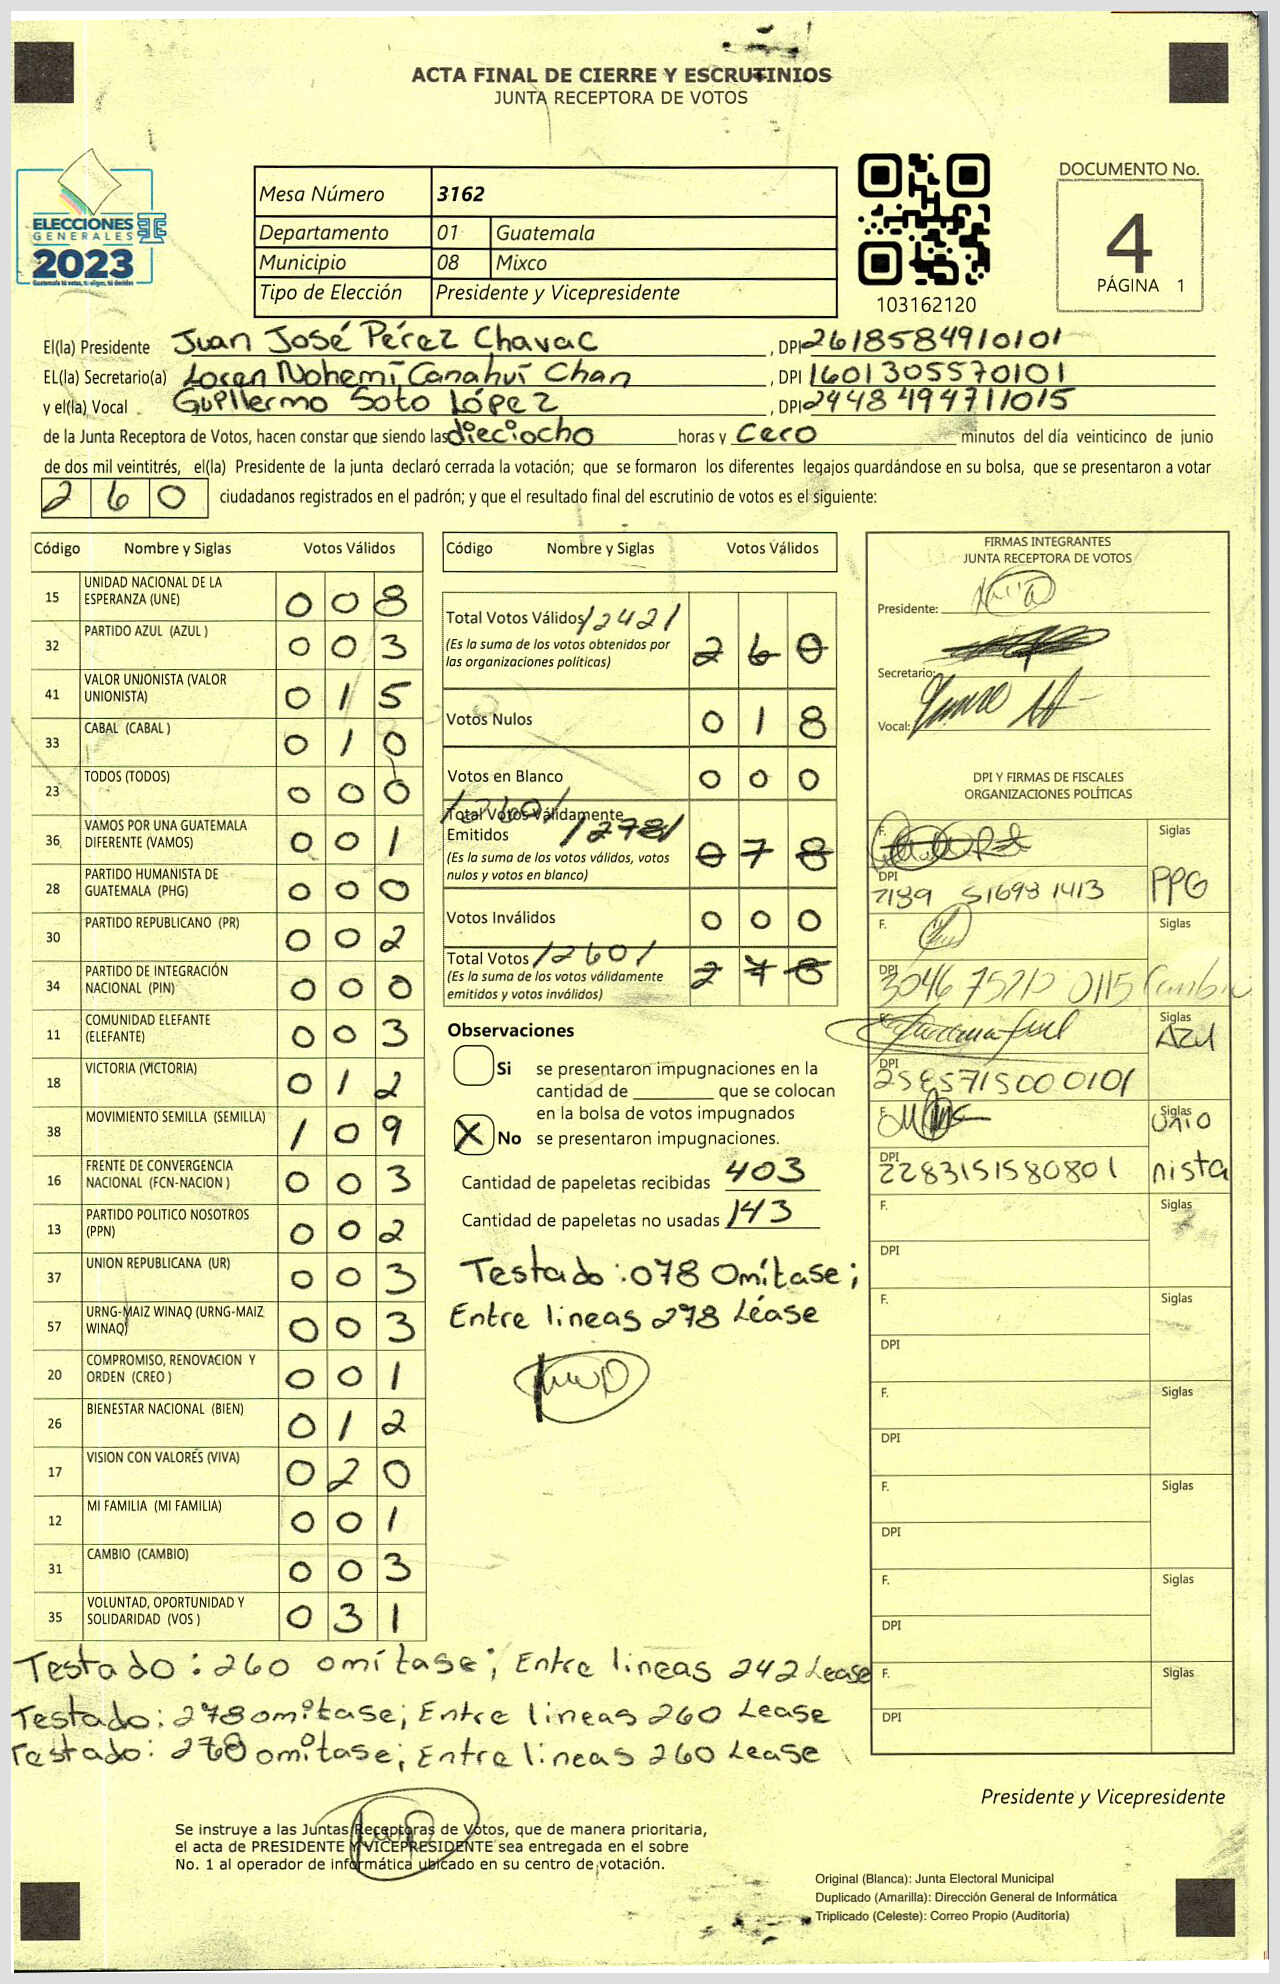 ACTA FINAL DE CIERRE Y ESCRUTINIOS
JUNTA RECEPTORA DE VOTOS
ELECCIONES
GENERALES
2023
Guatemala tú votas, tú eliges, tú decides
Mesa Número 3162
Departamento 01 Guatemala
Municipio 08 Mixco
Tipo de Elección Presidente y Vicepresidente
103162120
DOCUMENTO No.
4
PÁGINA 1
El(la) Presidente Juan José Pérez Chavac , DPI 2618584910101
EL(la) Secretario(a) Loren Nohemí Canahuí Chan , DPI 1601305570101
y el(la) Vocal Guillermo Soto López , DPI 2448494711015
de la Junta Receptora de Votos, hacen constar que siendo las dieciocho horas y cero minutos del día veinticinco de junio
de dos mil veintitrés, el(la) Presidente de la junta declaró cerrada la votación; que se formaron los diferentes legajos guardándose en su bolsa, que se presentaron a votar
260 ciudadanos registrados en el padrón; y que el resultado final del escrutinio de votos es el siguiente:
Código Nombre y Siglas Votos Válidos
15 UNIDAD NACIONAL DE LA ESPERANZA (UNE) 008
32 PARTIDO AZUL (AZUL ) 003
41 VALOR UNIONISTA (VALOR UNIONISTA) 015
33 CABAL (CABAL ) 010
23 TODOS (TODOS) 000
36 VAMOS POR UNA GUATEMALA DIFERENTE (VAMOS) 001
28 PARTIDO HUMANISTA DE GUATEMALA (PHG) 000
30 PARTIDO REPUBLICANO (PR) 002
34 PARTIDO DE INTEGRACIÓN NACIONAL (PIN) 000
11 COMUNIDAD ELEFANTE (ELEFANTE) 003
18 VICTORIA (VICTORIA) 012
38 MOVIMIENTO SEMILLA (SEMILLA) 109
16 FRENTE DE CONVERGENCIA NACIONAL (FCN-NACION ) 003
13 PARTIDO POLITICO NOSOTROS (PPN) 002
37 UNION REPUBLICANA (UR) 003
57 URNG-MAIZ WINAQ (URNG-MAIZ WINAQ) 003
20 COMPROMISO, RENOVACION Y ORDEN (CREO ) 001
26 BIENESTAR NACIONAL (BIEN) 012
17 VISION CON VALORES (VIVA) 020
12 MI FAMILIA (MI FAMILIA) 001
31 CAMBIO (CAMBIO) 003
35 VOLUNTAD, OPORTUNIDAD Y SOLIDARIDAD (VOS ) 031
Código Nombre y Siglas Votos Válidos
Total Votos Válidos /242/ 260
(Es la suma de los votos obtenidos por
las organizaciones políticas)
Votos Nulos 018
Votos en Blanco 000
/260/
Total Votos Válidamente
Emitidos /278/ 078
(Es la suma de los votos válidos, votos
nulos y votos en blanco)
Votos Inválidos 000
Total Votos /260/ 278
(Es la suma de los votos válidamente
emitidos y votos inválidos)
Observaciones
Si se presentaron impugnaciones en la
cantidad de ________ que se colocan
en la bolsa de votos impugnados
X No se presentaron impugnaciones.
Cantidad de papeletas recibidas 403
Cantidad de papeletas no usadas 143
Testado: 078 Omítase;
Entre lineas 278 Léase
FIRMAS INTEGRANTES
JUNTA RECEPTORA DE VOTOS
Presidente:
Secretario:
Vocal:
DPI Y FIRMAS DE FISCALES
ORGANIZACIONES POLÍTICAS
F. Siglas
DPI 2189 51698 1413 PPG
F. Siglas
DPI 3046 75210 0115 Cambio
F. Siglas
Azul
DPI 2585715000101
F. Siglas
Unio
DPI 2283151580801 nista
F. Siglas
DPI
F. Siglas
DPI
F. Siglas
DPI
F. Siglas
DPI
F. Siglas
DPI
F. Siglas
DPI
Testado: 260 omítase; Entre lineas 242 Lease
Testado: 278 omítase; Entre lineas 260 Lease
Testado: 278 omítase; Entre lineas 260 Lease
Presidente y Vicepresidente
Se instruye a las Juntas Receptoras de Votos, que de manera prioritaria,
el acta de PRESIDENTE Y VICEPRESIDENTE sea entregada en el sobre
No. 1 al operador de informática ubicado en su centro de votación.
Original (Blanca): Junta Electoral Municipal
Duplicado (Amarilla): Dirección General de Informática
Triplicado (Celeste): Correo Propio (Auditoría)